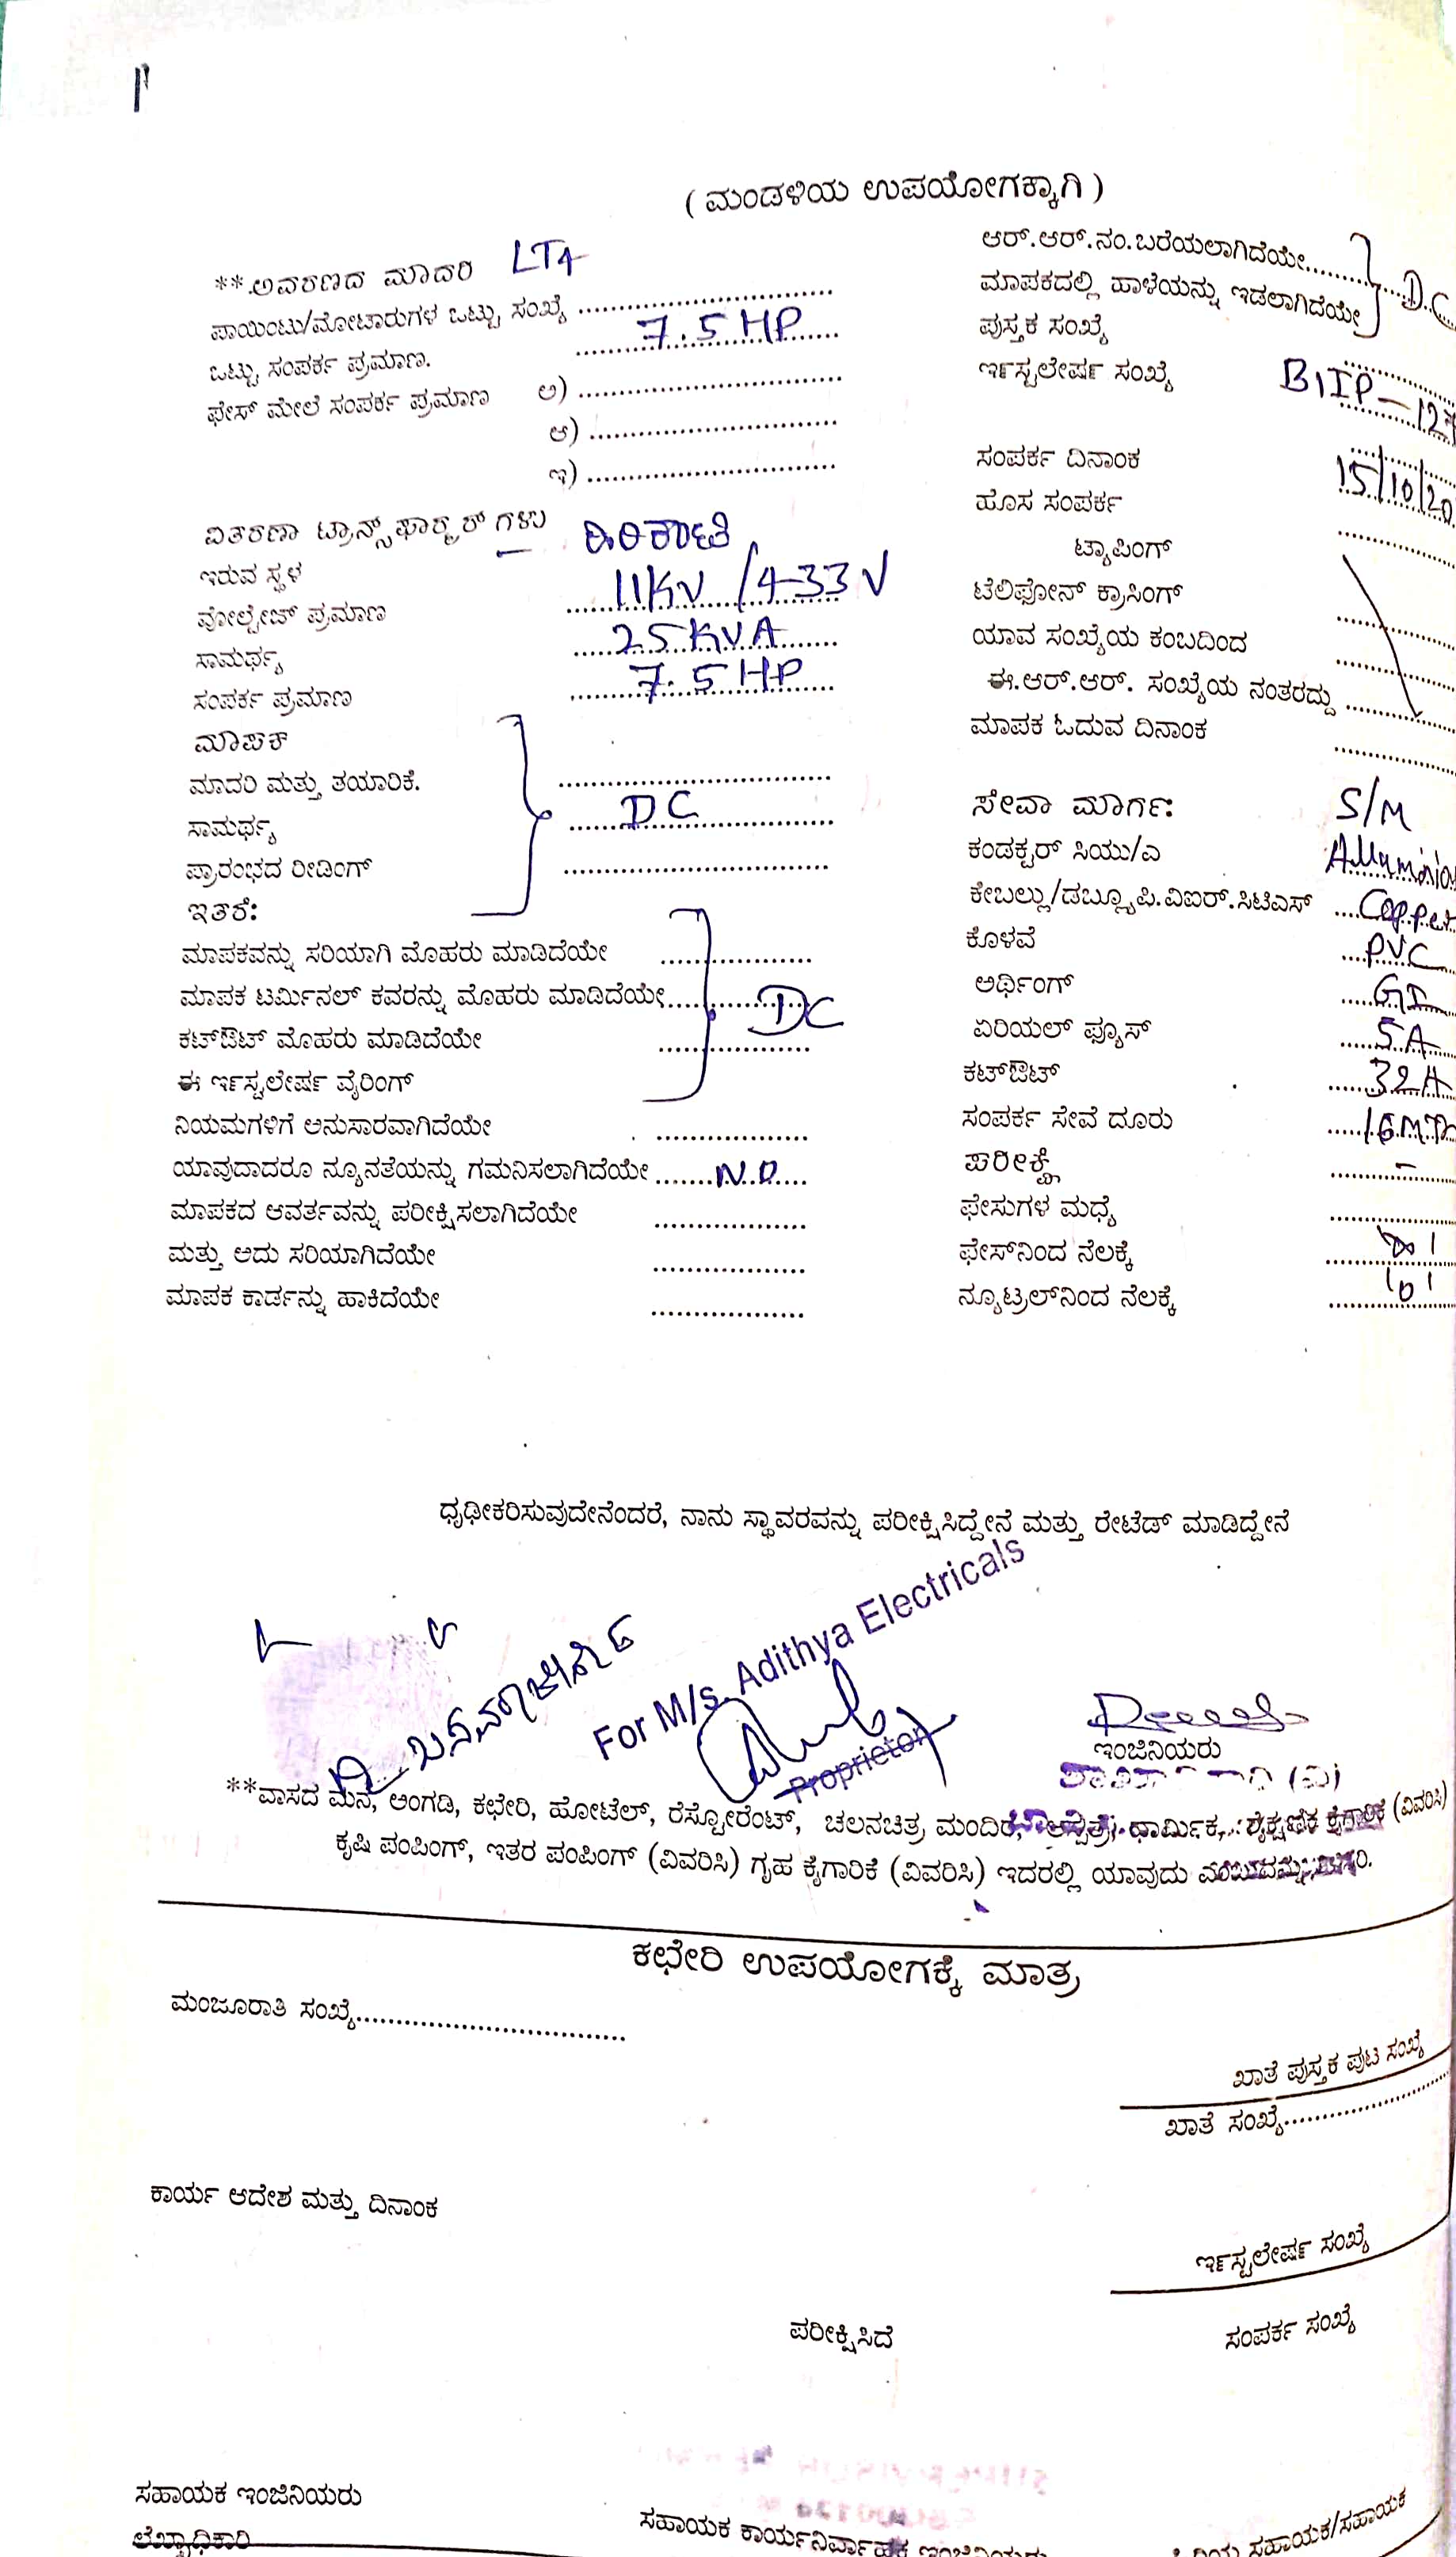 ( ಮಂಡಳಿಯ ಉಪಯೋಗಕ್ಕಾಗಿ )
**.ಅವರಣದ ಮಾದರಿ LT4
ಪಾಯಿಂಟು/ಮೋಟಾರುಗಳ ಒಟ್ಟು ಸಂಖ್ಯೆ ..............................
ಒಟ್ಟು ಸಂಪರ್ಕ ಪ್ರಮಾಣ. 7.5 HP
ಫೇಸ್ ಮೇಲೆ ಸಂಪರ್ಕ ಪ್ರಮಾಣ ಅ) ..............................
ಆ) ..............................
ಇ) ..............................
ವಿತರಣಾ ಟ್ರಾನ್ಸ್‌ಫಾರ್ಮರ್ ಗಳು
ಇರುವ ಸ್ಥಳ
ವೋಲ್ಟೇಜ್ ಪ್ರಮಾಣ 11KV /433 V
ಸಾಮರ್ಥ್ಯ 25 KVA
ಸಂಪರ್ಕ ಪ್ರಮಾಣ 7.5 HP
ಮಾಪಕ
ಮಾದರಿ ಮತ್ತು ತಯಾರಿಕೆ. ..............................
ಸಾಮರ್ಥ್ಯ DC
ಪ್ರಾರಂಭದ ರೀಡಿಂಗ್ ..............................
ಇತರೆ:
ಮಾಪಕವನ್ನು ಸರಿಯಾಗಿ ಮೊಹರು ಮಾಡಿದೆಯೇ ..................
ಮಾಪಕ ಟರ್ಮಿನಲ್ ಕವರನ್ನು ಮೊಹರು ಮಾಡಿದೆಯೇ.................. DC
ಕಟ್‌ಔಟ್ ಮೊಹರು ಮಾಡಿದೆಯೇ ..................
ಈ ರ್ಇಸ್ಟಲೇಷರ್ ವೈರಿಂಗ್
ನಿಯಮಗಳಿಗೆ ಅನುಸಾರವಾಗಿದೆಯೇ ..................
ಯಾವುದಾದರೂ ನ್ಯೂನತೆಯನ್ನು ಗಮನಿಸಲಾಗಿದೆಯೇ ........N.O.....
ಮಾಪಕದ ಆವರ್ತವನ್ನು ಪರೀಕ್ಷಿಸಲಾಗಿದೆಯೇ ..................
ಮತ್ತು ಅದು ಸರಿಯಾಗಿದೆಯೇ ..................
ಮಾಪಕ ಕಾರ್ಡನ್ನು ಹಾಕಿದೆಯೇ ..................
ಆರ್.ಆರ್.ನಂ.ಬರೆಯಲಾಗಿದೆಯೇ..............
ಮಾಪಕದಲ್ಲಿ ಹಾಳೆಯನ್ನು ಇಡಲಾಗಿದೆಯೇ D.C
ಪುಸ್ತಕ ಸಂಖ್ಯೆ
ರ್ಇಸ್ಟಲೇಷರ್ ಸಂಖ್ಯೆ BIIP-
ಸಂಪರ್ಕ ದಿನಾಂಕ 15/10/20
ಹೊಸ ಸಂಪರ್ಕ
ಟ್ಯಾಪಿಂಗ್
ಟೆಲಿಫೋನ್ ಕ್ರಾಸಿಂಗ್
ಯಾವ ಸಂಖ್ಯೆಯ ಕಂಬದಿಂದ
ಈ.ಆರ್.ಆರ್. ಸಂಖ್ಯೆಯ ನಂತರದ್ದು
ಮಾಪಕ ಓದುವ ದಿನಾಂಕ
ಸೇವಾ ಮಾರ್ಗ: S/M
ಕಂಡಕ್ಟರ್ ಸಿಯು/ಎ
ಕೇಬಲ್ಲು/ಡಬ್ಲ್ಯೂಪಿ.ವಿಐರ್.ಸಿಟಿಎಸ್ ....Copper
ಕೊಳವೆ ....PVC
ಅರ್ಥಿಂಗ್ .....GI
ಏರಿಯಲ್ ಫ್ಯೂಸ್ .....5A
ಕಟ್‌ಔಟ್ .....32A
ಸಂಪರ್ಕ ಸೇವೆ ದೂರು
ಪರೀಕ್ಷೆ -
ಫೇಸುಗಳ ಮಧ್ಯೆ
ಫೇಸ್‌ನಿಂದ ನೆಲಕ್ಕೆ
ನ್ಯೂಟ್ರಲ್‌ನಿಂದ ನೆಲಕ್ಕೆ
ಧೃಢೀಕರಿಸುವುದೇನೆಂದರೆ, ನಾನು ಸ್ಥಾವರವನ್ನು ಪರೀಕ್ಷಿಸಿದ್ದೇನೆ ಮತ್ತು ರೇಟೆಡ್ ಮಾಡಿದ್ದೇನೆ
For M/s. Adithya Electricals
Proprietor
ಇಂಜಿನಿಯರು
**ವಾಸದ ಮನೆ, ಅಂಗಡಿ, ಕಛೇರಿ, ಹೋಟೆಲ್, ರೆಸ್ಟೋರೆಂಟ್, ಚಲನಚಿತ್ರ ಮಂದಿರ, ಆಸ್ಪತ್ರೆ, ಧಾರ್ಮಿಕ, ಶೈಕ್ಷಣಿಕ ಕೈಗಾರಿಕೆ (ವಿವರಿಸಿ)
ಕೃಷಿ ಪಂಪಿಂಗ್, ಇತರ ಪಂಪಿಂಗ್ (ವಿವರಿಸಿ) ಗೃಹ ಕೈಗಾರಿಕೆ (ವಿವರಿಸಿ) ಇದರಲ್ಲಿ ಯಾವುದು
ಕಛೇರಿ ಉಪಯೋಗಕ್ಕೆ ಮಾತ್ರ
ಮಂಜೂರಾತಿ ಸಂಖ್ಯೆ..................................
ಖಾತೆ ಪುಸ್ತಕ ಪುಟ ಸಂಖ್ಯೆ
ಖಾತೆ ಸಂಖ್ಯೆ......................
ಕಾರ್ಯ ಆದೇಶ ಮತ್ತು ದಿನಾಂಕ
ರ್ಇಸ್ಟಲೇಷರ್ ಸಂಖ್ಯೆ
ಪರೀಕ್ಷಿಸಿದೆ ಸಂಪರ್ಕ ಸಂಖ್ಯೆ
ಸಹಾಯಕ ಇಂಜಿನಿಯರು
ಲೆಖ್ಖಾಧಿಕಾರಿ ಸಹಾಯಕ ಕಾರ್ಯನಿರ್ವಾಹಕ ಇಂಜಿನಿಯರು ಸಹಾಯಕ/ಸಹಾಯಕ